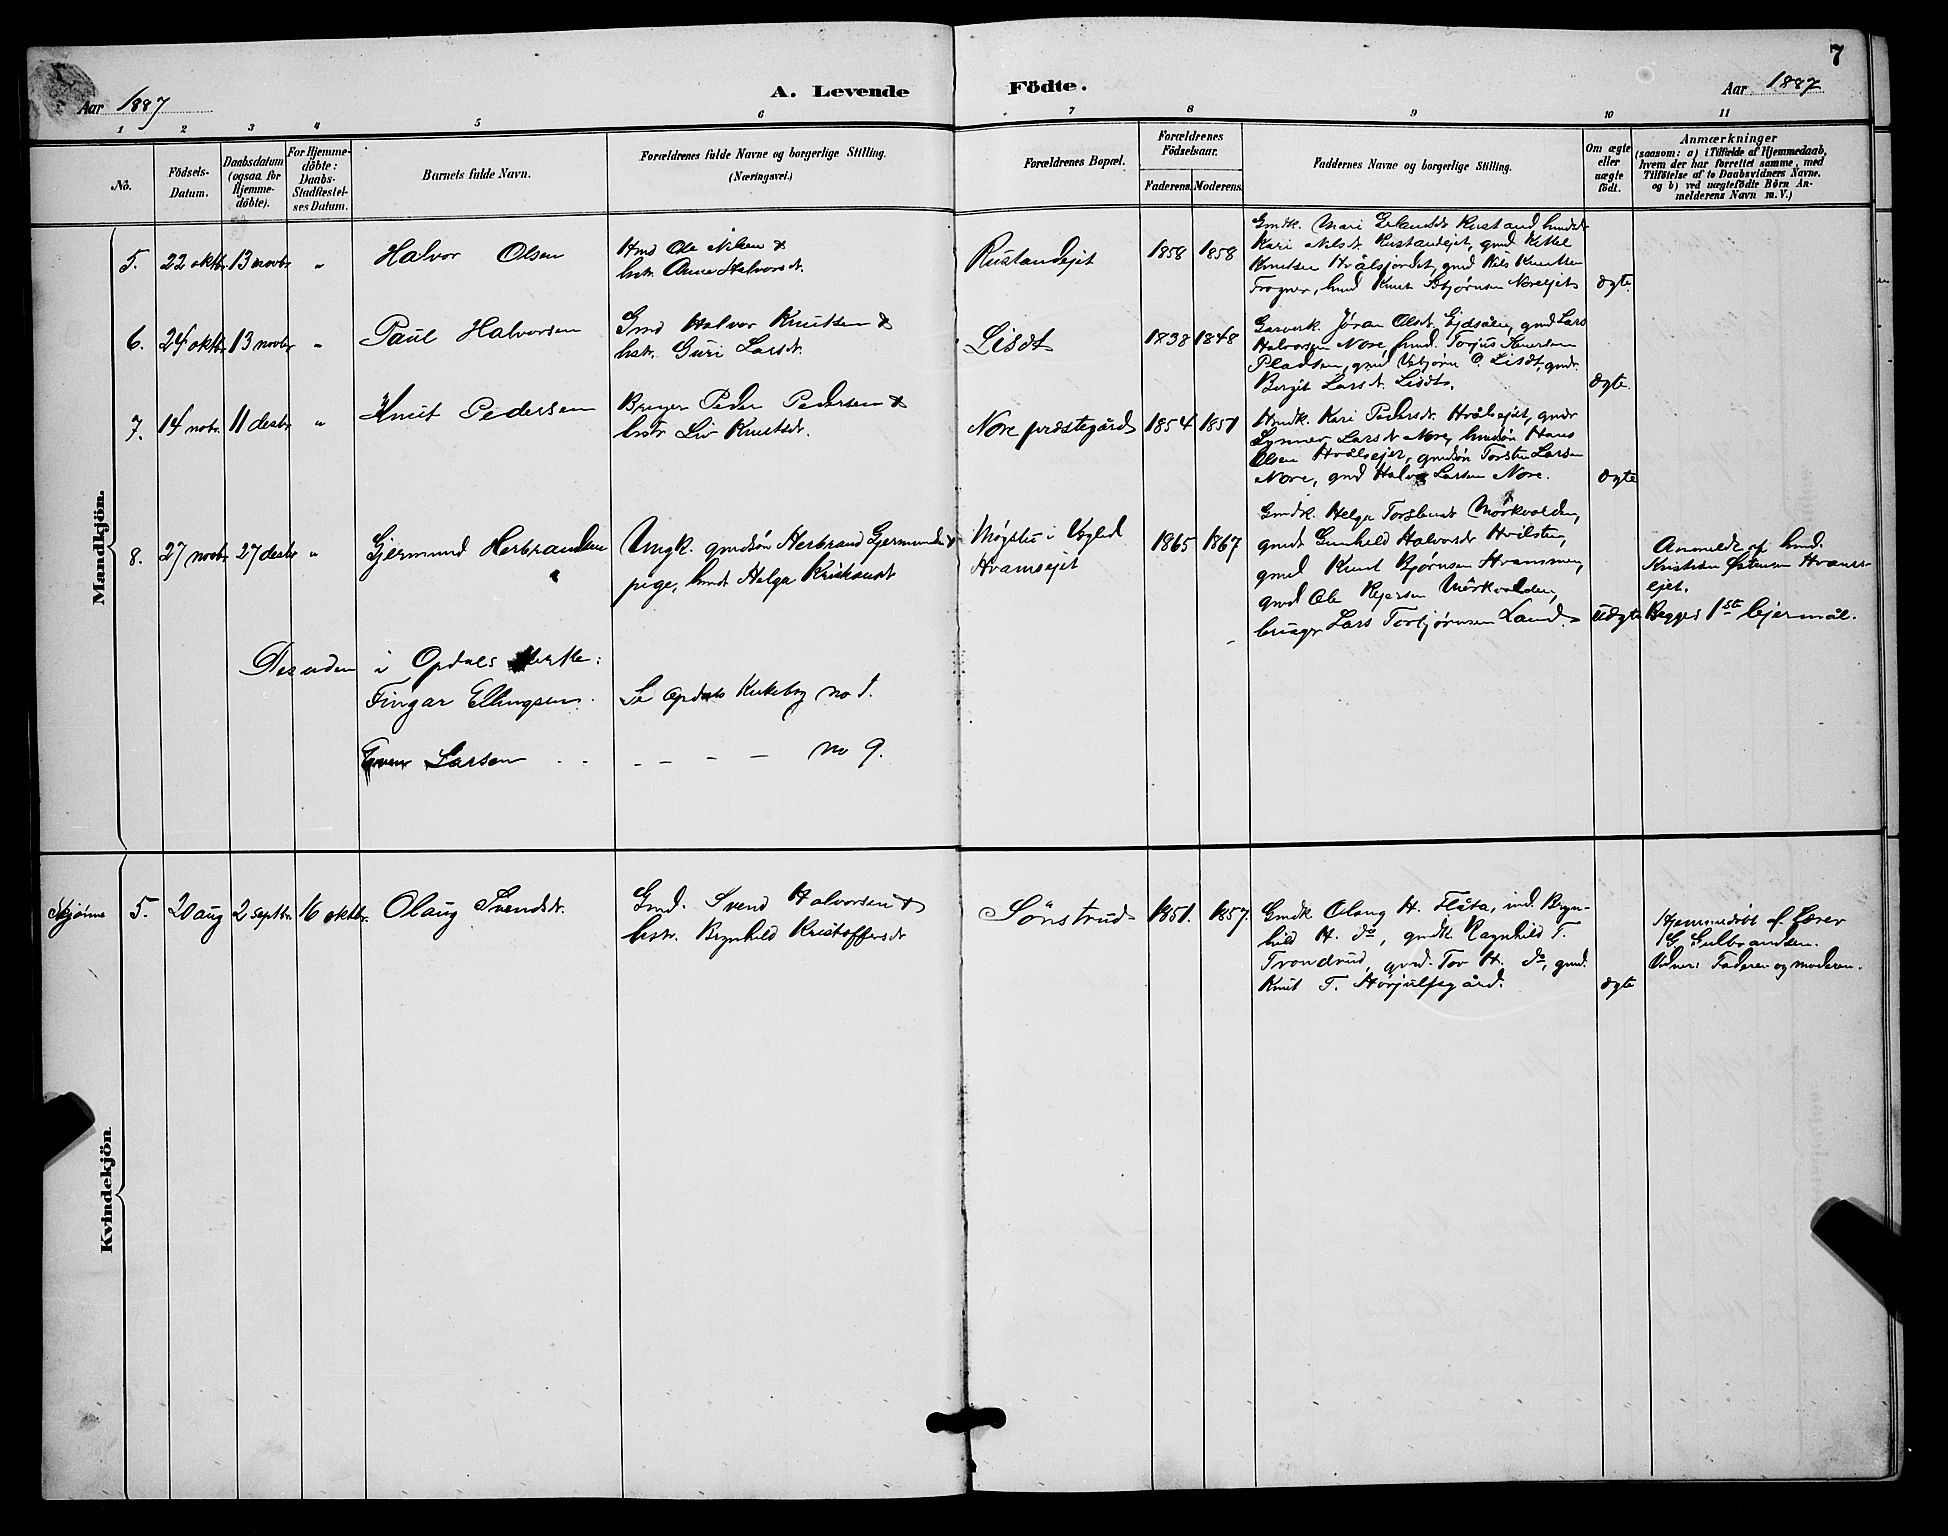 7
Aar 1887
A. Levende Födte.
Aar 1887
1 2 3 4 5 6 7 8 9 10 11
No.
Födsels-Datum.
Daabsdatum (ogsaa for Hjemme-döbte).
For Hjemme-döbte: Daabs-Stadfæstel-ses Datum.
Barnets fulde Navn.
Forældrenes fulde Navne og borgerlige Stilling. (Næringsvei.)
Forældrenes Bopæl.
Forældrenes Födselsaar.
Faderens. Moderens.
Faddernes Navne og borgerlige Stilling.
Om ægte eller uægte födt.
Anmærkninger
(saasom: a) i Tilfælde af Hjemmedaab, hvem der har forrettet samme, med Tilföielse af to Daabsvidners Navne. og b) ved uægtefödte Börn An-melderens Navn m. V.)
Mandkjön.
5. 22 oktbr 13 novbr " Halvor Olsen
Hmd Ole Nilsen &
hstr. Anne Halvorsdt.
Rustandejet 1858 1858
Gmdk. Mari Erlandsdt Rustand, hmdt
Kari Nilsdt. Rustandejet, gmd Kittel
Knutsen Hvålsjordet, gmd Nils Knutsen
Frogner, hmd Knut Estjørnsen Noreejet
ægte.
6. 24 oktbr 13 novbr " Paul Halvorsen
Gmd Halvor Knutsen &
hstr. Guri Larsdt.
Lisdt 1838 1848
Garverk. Jøran Olsdt. Ejdsåen, gmd Lars
Halvorsen Nore, hmd. Torjus
Pladsen, gmd O. Lisdt, gmdt.
Bergit Larsdt. Lisdt.
ægte.
7. 14 novbr. 11 desbr " Knut Pedersen
Bruger Peder Pedersen &
hstr Liv Knutsdt.
Nore præstegård 1854 1851
Hmdk. Kari Pedersdt. Hvålsejet, gmdt
Synnev Larsdt Nore, hmdsøn Hans
Olsen Hvålsejet, gmdsøn Torsten Larsen
Nore, gmd Halvor Larsen Nore.
ægte
8. 27 novbr 27 desbr " Gjermund Herbrandsen
Ungk. gmdsøn Herbrand Gjermunds. &
pige, hmdt Helga Kristiansdt
Møgstu i Vegled
Hvamsejet
1865 1867
Gmdk. Helga Torstensdt Mörkvolden,
gmdt Gunhild Halvorsdt Hvilsten,
gmd Knut Bjørnsen Hvammen,
gmd Ole Rejersen Mörkvolden,
bruger Lars Torbjørnsen Land.
uægte
Anmeldt af hmd.
Kristian Østensen Hvams-
ejet.
Begges 1ste lejermål.
Desuden i Opdals kirke:
Fingar Ellingsen. Se Opdals Kirkebog no 1.
Even Larsen - - - - - - no 9.
Kvindekjön.
Skjønne 5. 20 aug 2 septbr. 16 oktbr. Olaug Svendsdt.
Gmd. Svend Halvorsen &
hstr. Brynhild Kristoffersdt
Sönstrud 1851. 1857.
Gmdk Olaug H. Flåta, ind. Bryn-
hild H. do, gmdk Ragnhild T.
Trondrud, gmd. Tov H. do, gmd.
Knut T. Hørjulfsgård.
ægte
Hjemmedøbt af Lærer
G. Gulbrandsen.
Vidner: Faderen og moderen.